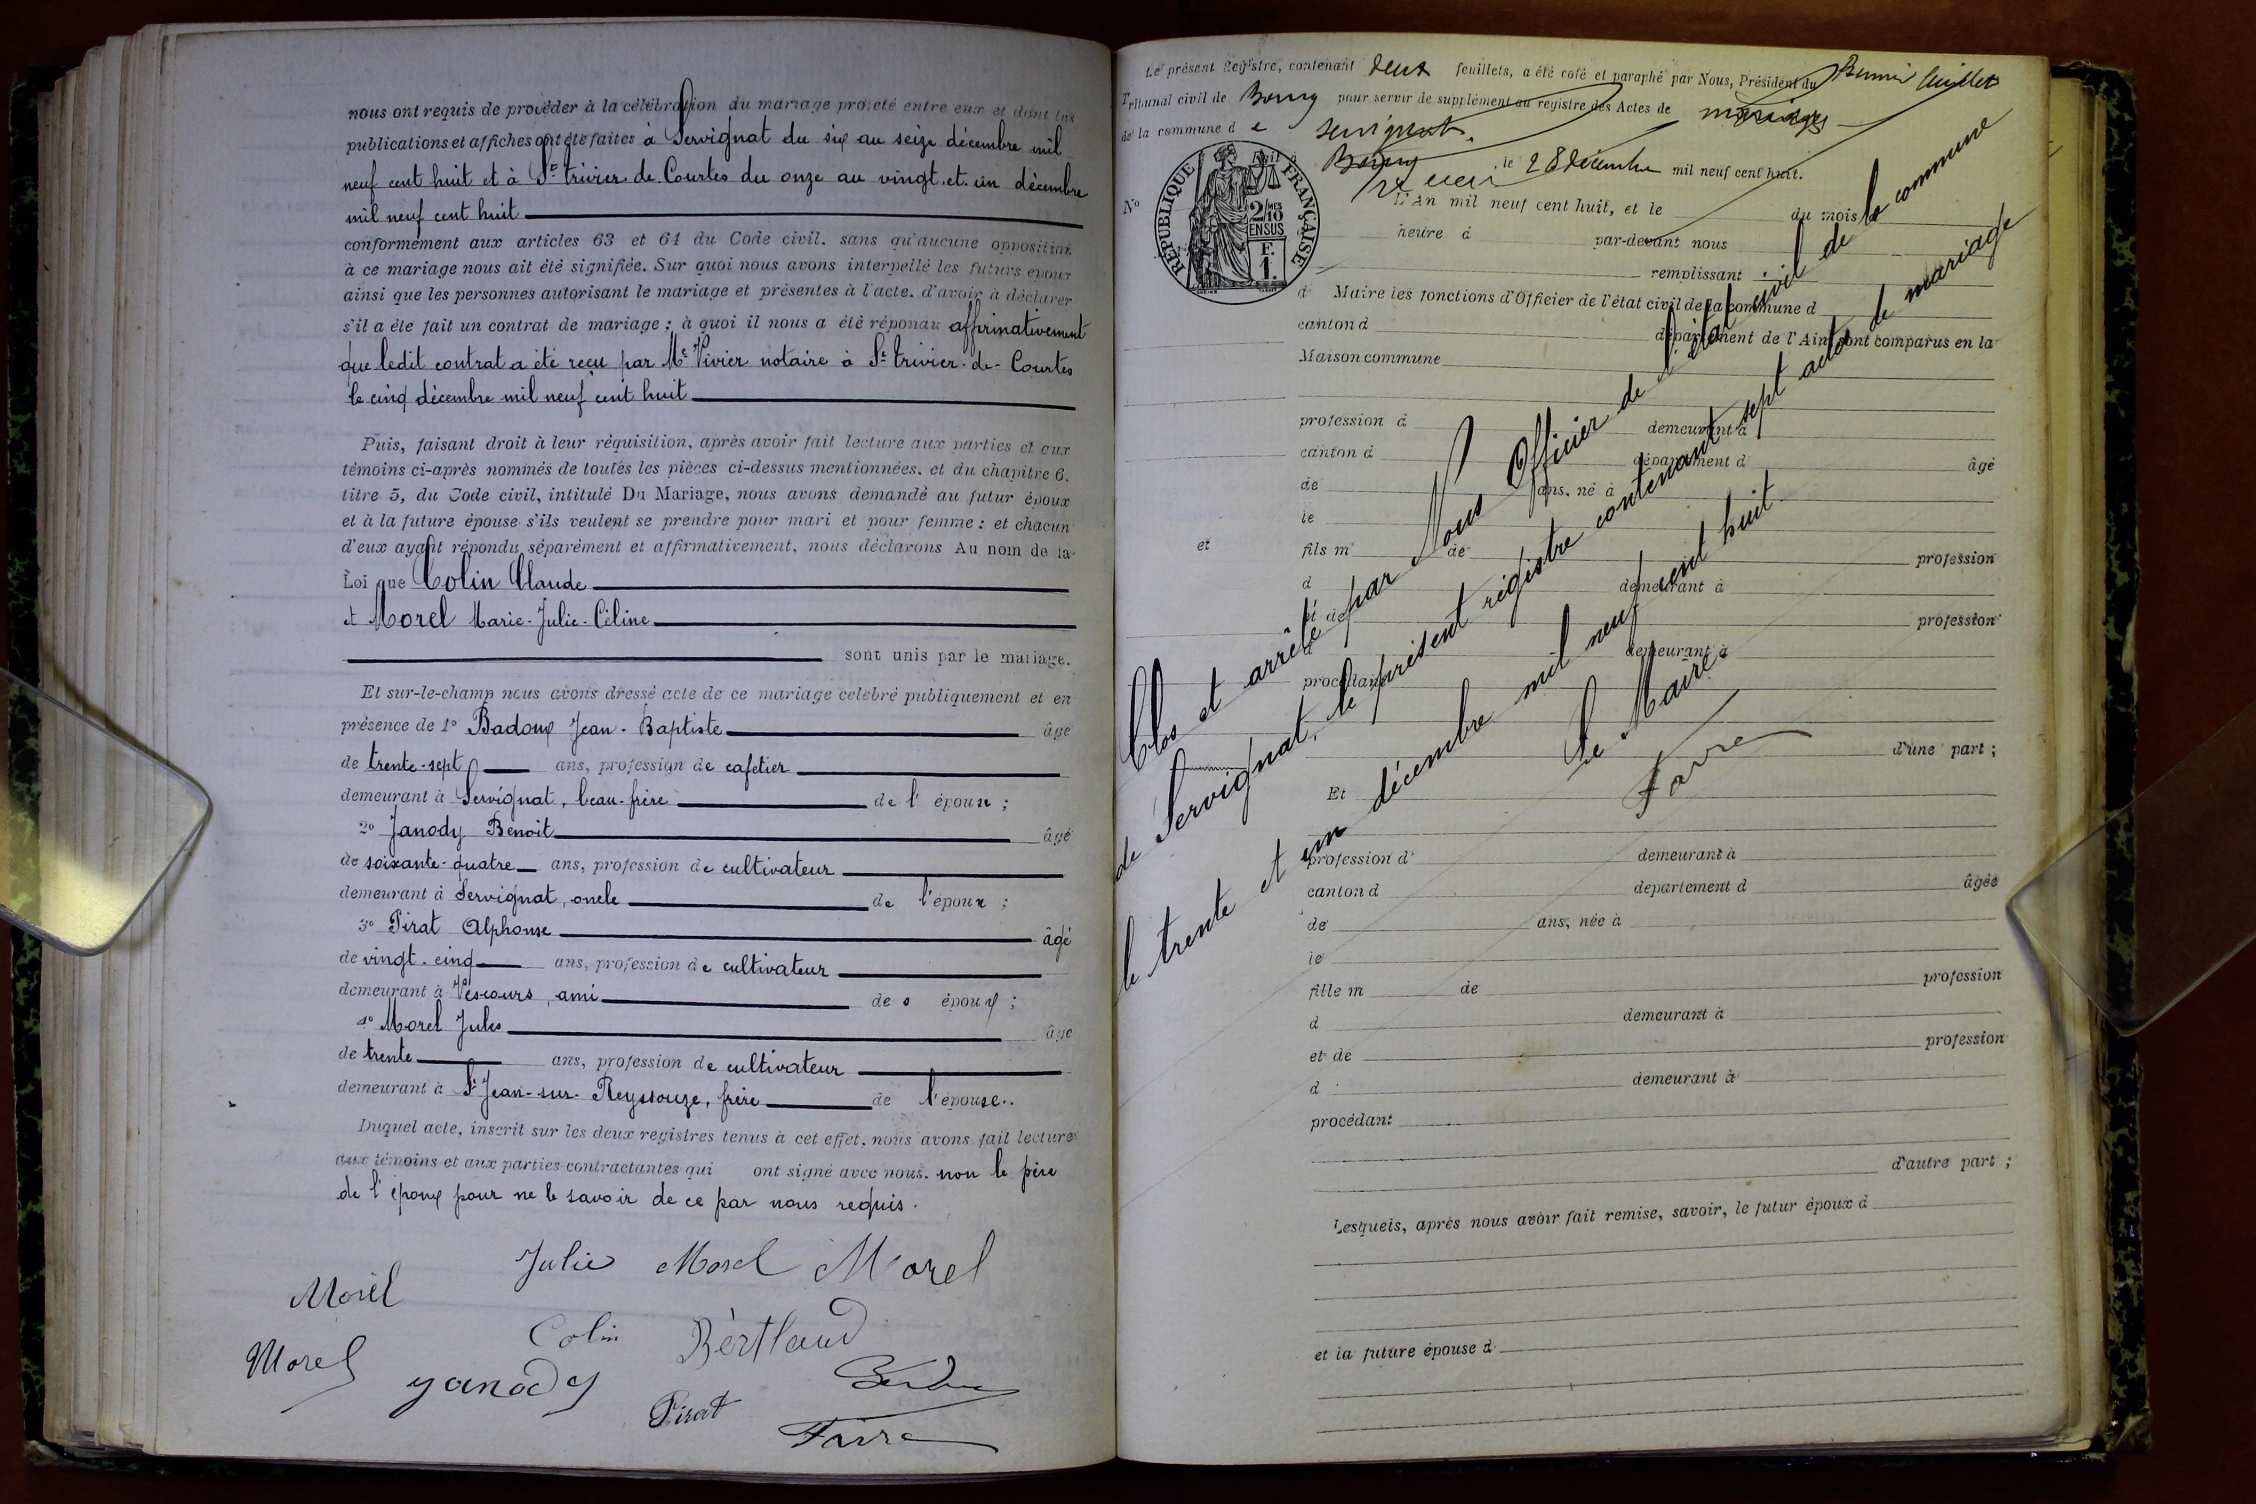 nous ont requis de procéder à la célébration du mariage projeté entre eux et dont les
publications et affiches ont été faites à Servignat du six au seize décembre mil
neuf cent huit et à St trivier de Courtes du onze au vingt et un décembre
mil neuf cent huit
conformément aux articles 63 et 64 du Code civil. sans qu'aucune opposition
à ce mariage nous ait été signifiée. Sur quoi nous avons interpellé les futurs époux
ainsi que les personnes autorisant le mariage et présentes à l'acte. d'avoir à déclarer
s'il a été fait un contrat de mariage ; à quoi il nous a été répondu affirmativement
que ledit contrat a été reçu par Me Vivier notaire à St trivier-de-Courtes
le cinq décembre mil neuf cent huit
Puis, faisant droit à leur réquisition, après avoir fait lecture aux parties et aux
témoins ci-après nommés de toutes les pièces ci-dessus mentionnées. et du chapitre 6.
titre 5, du Code civil, intitulé Du Mariage, nous avons demandé au futur époux
et à la future épouse s'ils veulent se prendre pour mari et pour femme : et chacun
d'eux ayant répondu séparément et affirmativement, nous déclarons Au nom de la
Loi que Colin Claude
et Morel Marie-Julie-Céline
sont unis par le mariage.
Et sur-le-champ nous avons dressé acte de ce mariage célébré publiquement et en
présence de 1° Badoux Jean-Baptiste âgé
de trente-sept ans, profession de cafetier
demeurant à Servignat, beau-frère de l'époux ;
2° Janody Benoit âgé
de soixante-quatre ans, profession de cultivateur
demeurant à Servignat, oncle de l'époux ;
3° Pirat Alphonse âgé
de vingt-cinq ans, profession de cultivateur
demeurant à Vescours, ami des époux ;
4° Morel Jules âgé
de trente ans, profession de cultivateur
demeurant à St Jean-sur-Reyssouze, frère de l'épouse.
Duquel acte, inscrit sur les deux registres tenus à cet effet. nous avons fait lecture
aux témoins et aux parties contractantes qui ont signé avec nous. non le père
de l'époux pour ne le savoir de ce par nous requis.
Julie Morel Morel
Morel
Colin Berthaud
Morel
yanody
Pirat
Favre
Le présent Registre, contenant deux feuillets, a été coté et paraphé par Nous, Président du
Tribunal civil de Bourg pour servir de supplément au registre des Actes de mariages
de la commune de Servignat.
Bourg, le 28 décembre mil neuf cent huit.
RÉPUBLIQUE FRANÇAISE
2/10 MES
EN SUS
F.
1.
N° L'An mil neuf cent huit, et le du mois d
heure à par-devant nous
remplissant
d Maire les fonctions d'Officier de l'état civil de la commune d
canton d département de l'Ain, sont comparus en la
Maison commune
profession d demeurant à
canton d département d âgé
de ans, né à
le
et fils m de profession
d demeurant à
et de profession
d demeurant à
procédant
d'une part ;
Et
profession d demeurant à
canton d département d âgée
de ans, née à
le
fille m de profession
d demeurant à
et de profession
d demeurant à
procédant
d'autre part ;
Lesquels, après nous avoir fait remise, savoir, le futur époux d
et la future épouse d
Clos et arrêté par Nous Officier de l'état civil de la commune
de Servignat, le présent régistre contenant sept actes de mariage
le trente et un décembre mil neuf cent huit.
Le Maire
Favre